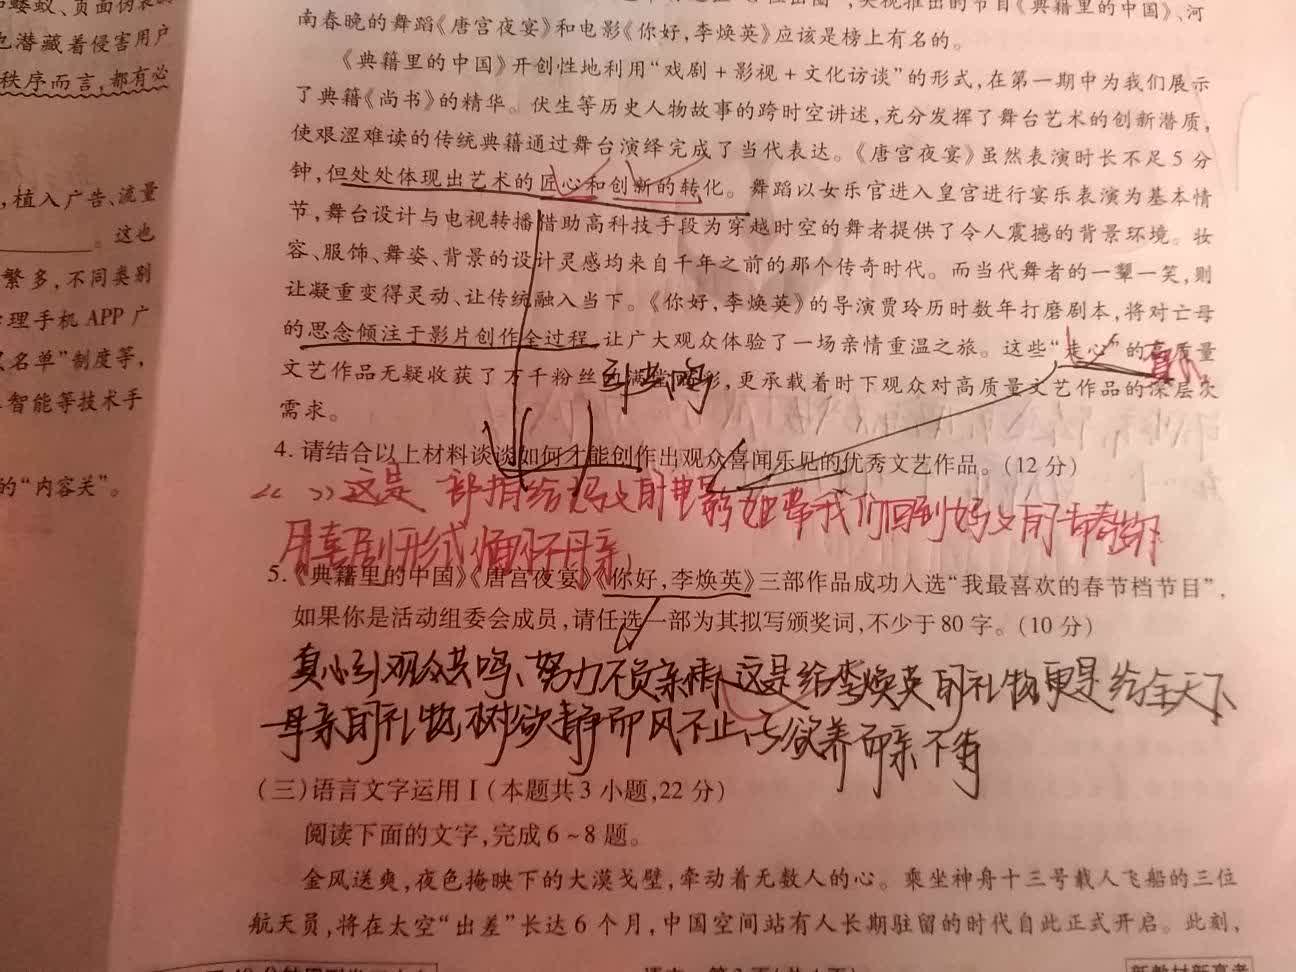 南春晚的舞蹈《唐宫夜宴》和电影《你好,李焕英》应该是榜上有名的。
《典籍里的中国》开创性地利用“戏剧+影视+文化访谈”的形式,在第一期中为我们展示
了典籍《尚书》的精华。伏生等历史人物故事的跨时空讲述,充分发挥了舞台艺术的创新潜质,
使艰涩难读的传统典籍通过舞台演绎完成了当代表达。《唐宫夜宴》虽然表演时长不足5分
钟,但处处体现出艺术的匠心和创新的转化。舞蹈以女乐官进入皇宫进行宴乐表演为基本情
节,舞台设计与电视转播借助高科技手段为穿越时空的舞者提供了令人震撼的背景环境。妆
容、服饰、舞姿、背景的设计灵感均来自千年之前的那个传奇时代。而当代舞者的一颦一笑,则
让凝重变得灵动、让传统融入当下。《你好,李焕英》的导演贾玲历时数年打磨剧本,将对亡母
的思念倾注于影片创作全过程,让广大观众体验了一场亲情重温之旅。这些“走心”的高质量
文艺作品无疑收获了万千粉丝,更承载着时下观众对高质量文艺作品的深层次
需求。
4.请结合以上材料谈谈如何才能创作出观众喜闻乐见的优秀文艺作品。(12分)
《 》这是一部捐给妈妈的电影她带我们回到妈妈的青春
用喜剧形式缅怀母亲
5.《典籍里的中国》《唐宫夜宴》《你好,李焕英》三部作品成功入选“我最喜欢的春节档节目”,
如果你是活动组委会成员,请任选一部为其拟写颁奖词,不少于80字。(10分)
真心引观众共鸣、努力不负亲情,这是给李焕英的礼物更是给全天下
母亲的礼物,树欲静而风不止,子欲养而亲不待
(三)语言文字运用Ⅰ(本题共3小题,22分)
阅读下面的文字,完成6~8题。
金风送爽,夜色掩映下的大漠戈壁,牵动着无数人的心。乘坐神舟十三号载人飞船的三位
航天员,将在太空“出差”长达6个月,中国空间站有人长期驻留的时代自此正式开启。此刻,
也潜藏着侵害用户
秩序而言,都有必
,植入广告、流量
。这也
繁多,不同类别
理手机APP广
名单”制度等,
智能等技术手
的“内容关”。